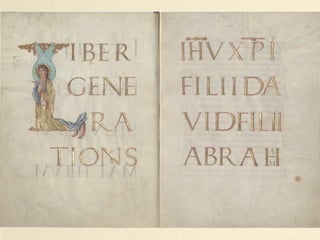 LIBER
GENE
RA
TIONS
IHVXPI
FILIIDA
VIDFILII
ABRAHAM